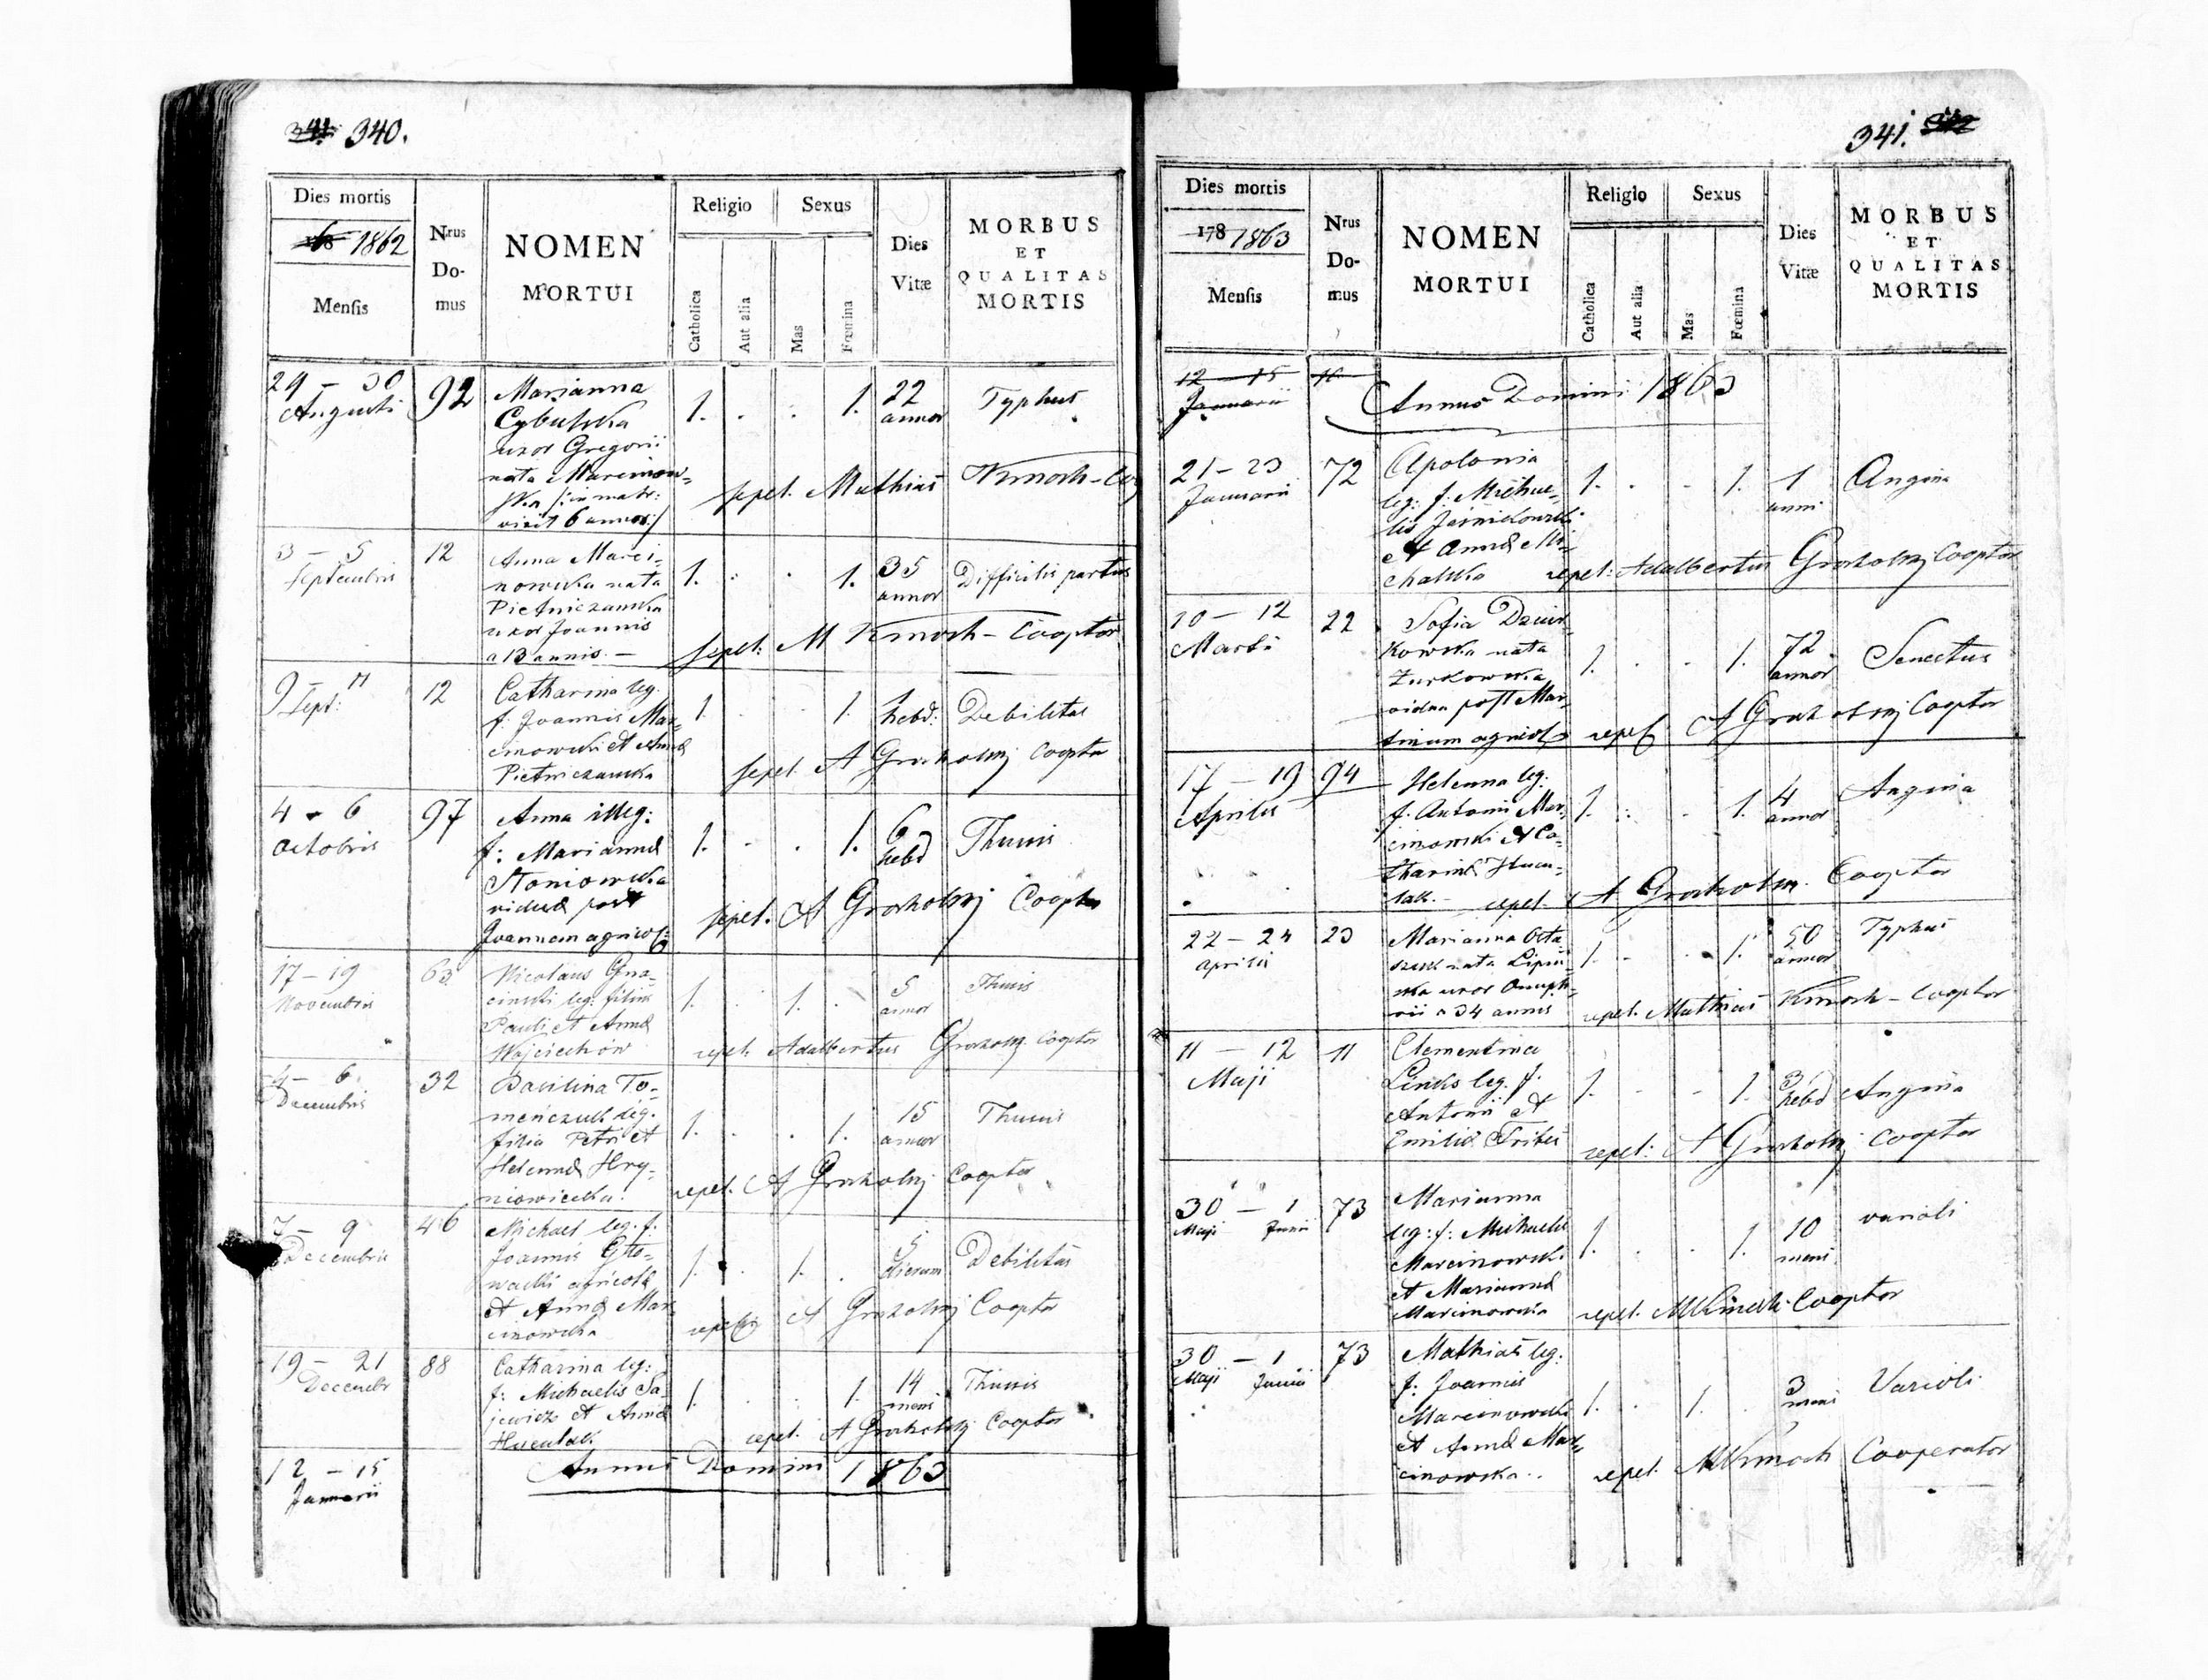 340.
Dies mortis
1862
Mensis
Nrus
Do-
mus
NOMEN
MORTUI
Religio
Catholica
Aut alia
Sexus
Mas
Fœmina
Dies
Vitæ
MORBUS
ET
QUALITAS
MORTIS
29 - 30
Augusti
92
Marianna
Cybulska
uxor Gregorii
nata Marcinow-
ska /:in matr:
vixit 6 annos:/
1. . . 1.
22
annor
Typhus
sepel. Mathias Kmoch - Coop
3 - 5
Septembris
12
Anna Marci-
nowska nata
Pietniczanska
uxor Joannis
a 13 annis. -
1. . . 1.
35
annor
Difficilis partus
sepel: M Kmoch - Cooptor
9 - 11
Sept:
12
Catharina leg.
f. Joannis Mar-
cinowski et Annæ
Pietniczanska
1. . . 1.
1
hebd:
Debilitas
sepel. A Grocholny Cooptor
4 - 6
Octobris
97
Anna illeg:
f: Mariannæ
Stoniowska
viduæ post
Joannem agricol:
1. . . 1.
6
hebd
Thussis
sepel. A Grocholny Cooptor
17 - 19
Novembris
63
Nicolaus Gna-
cinski leg: filius
Pauli et Annæ
Wojciechów
1. . 1. .
5
annor
Thussis
sepel. Adalbertus Grocholny Cooptor
4 - 6
Decembris
32
Basilina To-
menczuk leg.
filia Petri et
Helennæ Hry-
niowiecka.
1. . . 1.
15
annor
Thussis
sepel. A Grocholny Cooptor
7 - 9
Decembris
46
Michael leg. f.
Joannis Gło-
wacki agricolæ
et Annæ Mar-
cinowska
1. . 1. .
5
dierum
Debilitas
sepel A Grocholny Cooptor
19 - 21
Decembr
88
Catharina leg:
f: Michaelis Sa-
jewicz et Annæ
Huculak
1. . . 1.
14
mens
Thussis
sepel. A Grocholny Cooptor
12 - 15
Januarii
Annus Domini 1863
341.
Dies mortis
178 1863
Mensis
Nrus
Do-
mus
NOMEN
MORTUI
Religio
Catholica
Aut alia
Sexus
Mas
Fœmina
Dies
Vitæ
MORBUS
ET
QUALITAS
MORTIS
12 - 15
Januarii
Annus Domini 1863
21 - 23
Januarii
72
Apolonia
leg: f: Michae-
lis
et Annæ Mi-
chalska
1. . . 1.
1
anni
Angina
sepel: Adalbertus Grocholny Cooptor
10 - 12
Martii
22
Sofia Dziur-
kowska nata
Zurkowska
vidua post Mar-
tinum agricol
1. . . 1.
72
annor
Senectus
sepel A Grocholny Cooptor
17 - 19
Aprilis
94
Helenna leg:
f. Antonii Mar-
cinowski et Ca-
tharinæ Hucu-
lak. -
1. . . 1.
4
annor
Angina
sepel. A Grocholny Cooptor
22 - 24
Aprilis
23
Marianna Osta-
szuk nata Lipin-
ska uxor Onuph-
rii a 34 annis
1. . . 1.
50
annor
Typhus
sepel. Mathias Kmoch - Cooptor
11 - 12
Maji
11
Clementina
Links leg. f.
Antonii et
Emiliæ
1. . . 1.
3
hebd
Angina
sepel: A Grocholny Cooptor
30 - 1
Maji Junii
73
Marianna
leg: f: Michaelis
Marcinowski
et Mariannæ
Marcinowska
1. . . 1.
10
mens
varioli
sepel. MKmoch Cooptor
30 - 1
Maji Junii
73
Mathias leg:
f: Joannis
Marcinowski
et Annæ Mar-
cinowska..
1. . 1. .
3
mens
Varioli
sepel. MKmoch Cooperator